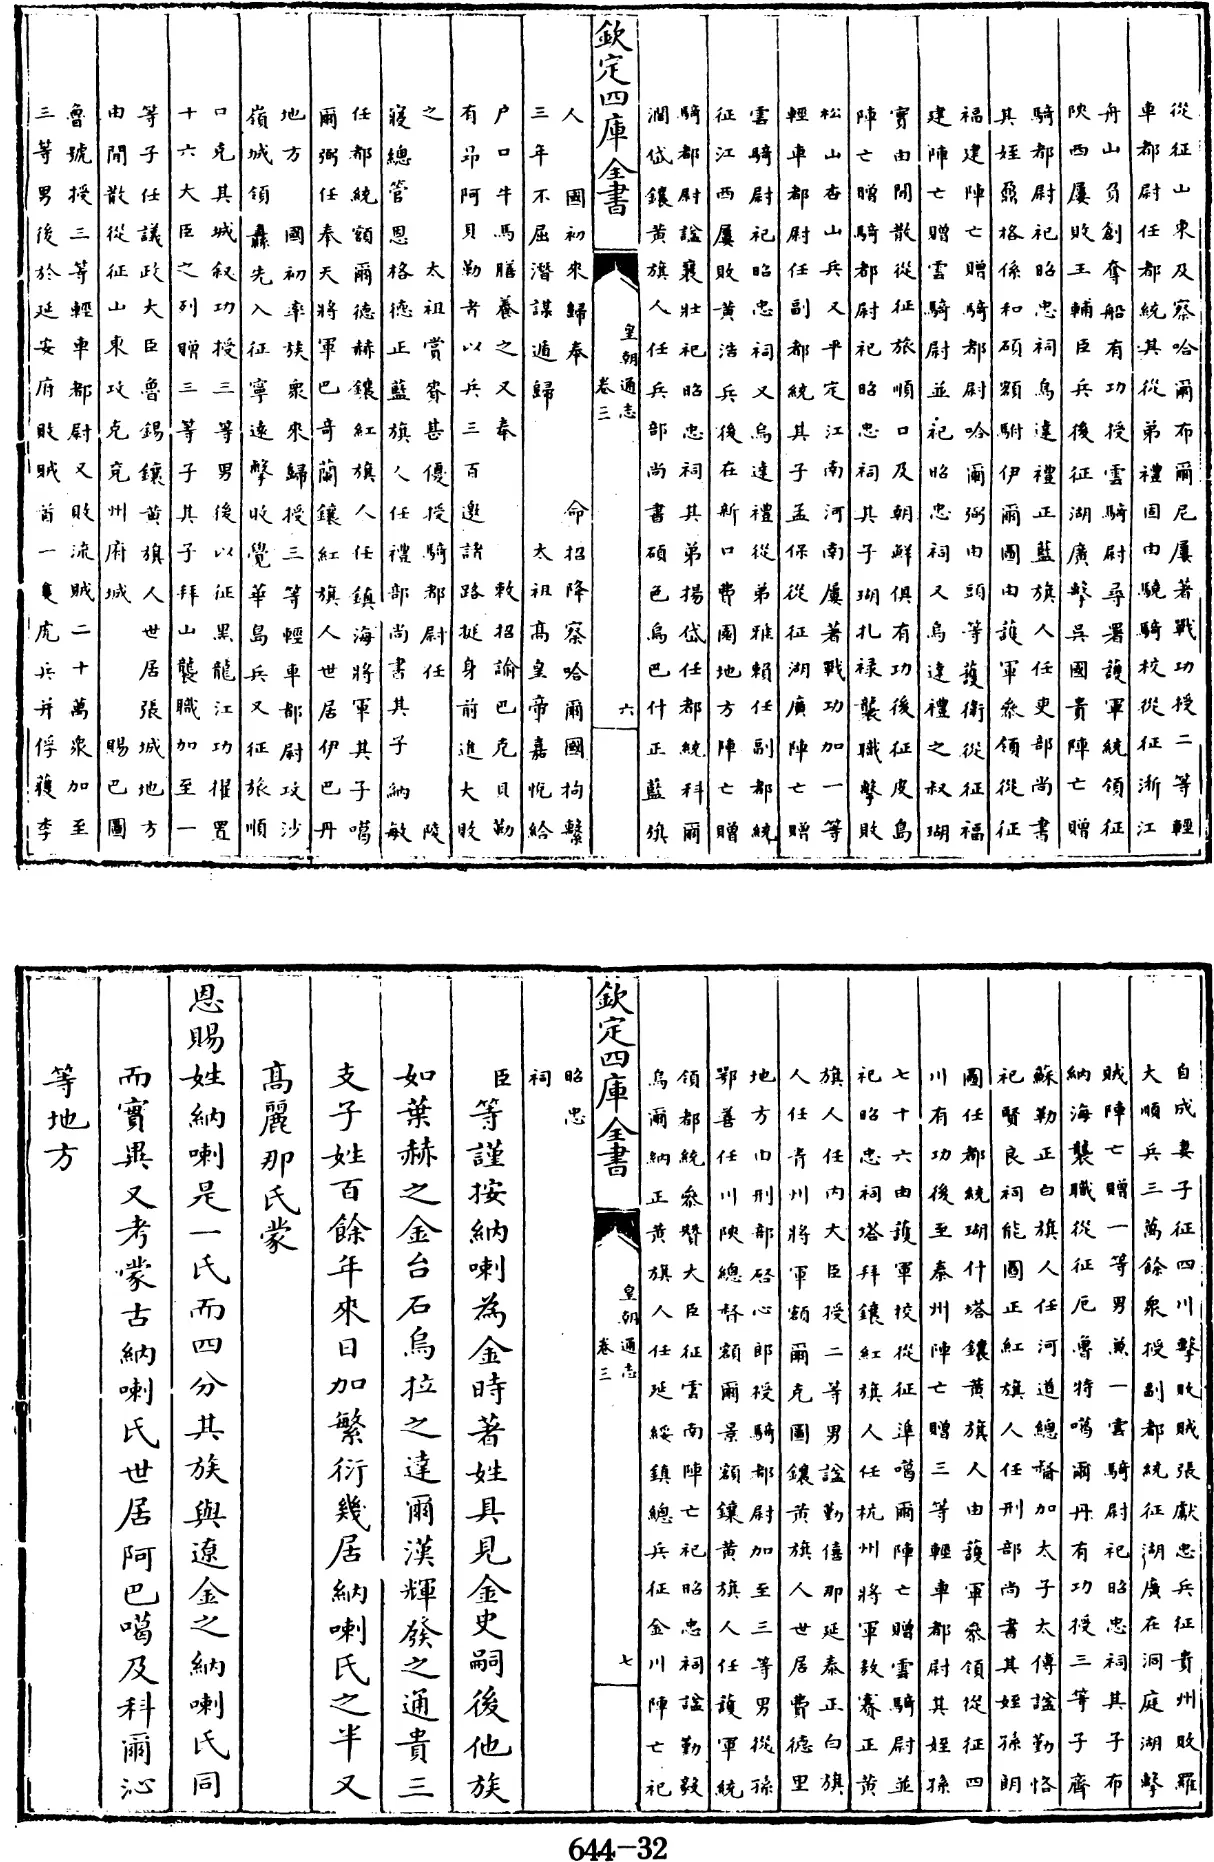 從征山東及察哈爾布爾尼屢著戰功授二等輕
車都尉任都統其從弟禮固由驍騎校從征浙江
舟山負創奪船有功授雲騎尉尋署護軍統領征
陜西屢敗王輔臣兵後征湖廣擊吳國貴陣亡贈
騎都尉祀昭忠祠烏達禮正藍旗人任吏部尚書
其姪鼐格係和碩額駙伊爾圖由護軍叅領從征
福建陣亡贈騎都尉哈爾弼由頭等護衛從征福
建陣亡贈雲騎尉並祀昭忠祠又烏達禮之叔瑚
實由閒散從征旅順口及朝鮮俱有功後征皮島
陣亡贈騎都尉祀昭忠祠其子瑚扎祿襲職擊敗
松山杏山兵又平定江南河南屢著戰功加一等
輕車都尉任副都統其子孟保從征湖廣陣亡贈
雲騎尉祀昭忠祠又烏達禮從弟雅賴任副都統
征江西屢敗黃浩兵後在新口費園地方陣亡贈
騎都尉諡襄壯祀昭忠祠其弟揚岱任都統科爾
濶岱鑲黃旗人任兵部尚書碩色烏巴什正藍旗
欽定四庫全書 皇朝通志 卷三 六
人 國初來歸奉 命招降察哈爾國拘繫
三年不屈潛謀遁歸 太祖高皇帝嘉悅給
户口牛馬膳養之又奉 敕招諭巴克貝勒
有昂阿貝勒者以兵三百邀諸路挺身前進大敗
之 太祖賞賚甚優授騎都尉任 陵
寢總管恩格德正藍旗人任禮部尚書其子納敏
任都統額爾德赫鑲紅旗人任鎮海將軍其子噶
爾弼任奉天將軍巴奇蘭鑲紅旗人世居伊巴丹
地方 國初率族衆來歸授三等輕車都尉攻沙
嶺城領纛先入征寧遠擊敗覺華島兵又征旅順
口克其城叙功授三等男後以征黑龍江功擢置
十六大臣之列贈三等子其子拜山襲職加至一
等子任議政大臣魯錫鑲黃旗人世居張城地方
由閒散從征山東攻克兗州府城 賜巴圖
魯號授三等輕車都尉又敗流賊二十萬衆加至
三等男後於延安府敗賊首一隻虎兵并俘獲李
自成妻子征四川擊敗賊張獻忠兵征貴州敗羅
大順兵三萬餘衆授副都統征湖廣在洞庭湖擊
賊陣亡贈一等男兼一雲騎尉祀昭忠祠其子布
納海襲職從征厄魯特噶爾丹有功授三等子齊
蘇勒正白旗人任河道總督加太子太傅諡勤恪
祀賢良祠能圖正紅旗人任刑部尚書其姪孫朗
圖任都統瑚什塔鑲黃旗人由護軍叅領從征四
川有功後至秦州陣亡贈三等輕車都尉其姪孫
七十六由護軍校從征準噶爾陣亡贈雲騎尉並
祀昭忠祠塔拜鑲紅旗人任杭州將軍敖賽正黃
旗人任內大臣授二等男諡勤僖那延泰正白旗
人任青州將軍額爾克圖鑲黃旗人世居費德里
地方由刑部啓心郎授騎都尉加至三等男從孫
鄂善任川陝總督額爾景額鑲黃旗人任護軍統
領都統叅贊大臣征雲南陣亡祀昭忠祠諡勤毅
烏爾納正黃旗人任延綏鎮總兵征金川陣亡祀
欽定四庫全書 皇朝通志 卷三 七
昭忠
祠
臣等謹按納喇為金時著姓具見金史嗣後他族
如葉赫之金台石烏拉之達爾漢輝發之通貴三
支子姓百餘年來日加繁衍幾居納喇氏之半又
高麗那氏蒙
恩賜姓納喇是一氏而四分其族與遼金之納喇氏同
而實異又考蒙古納喇氏世居阿巴噶及科爾沁
等地方
644-32